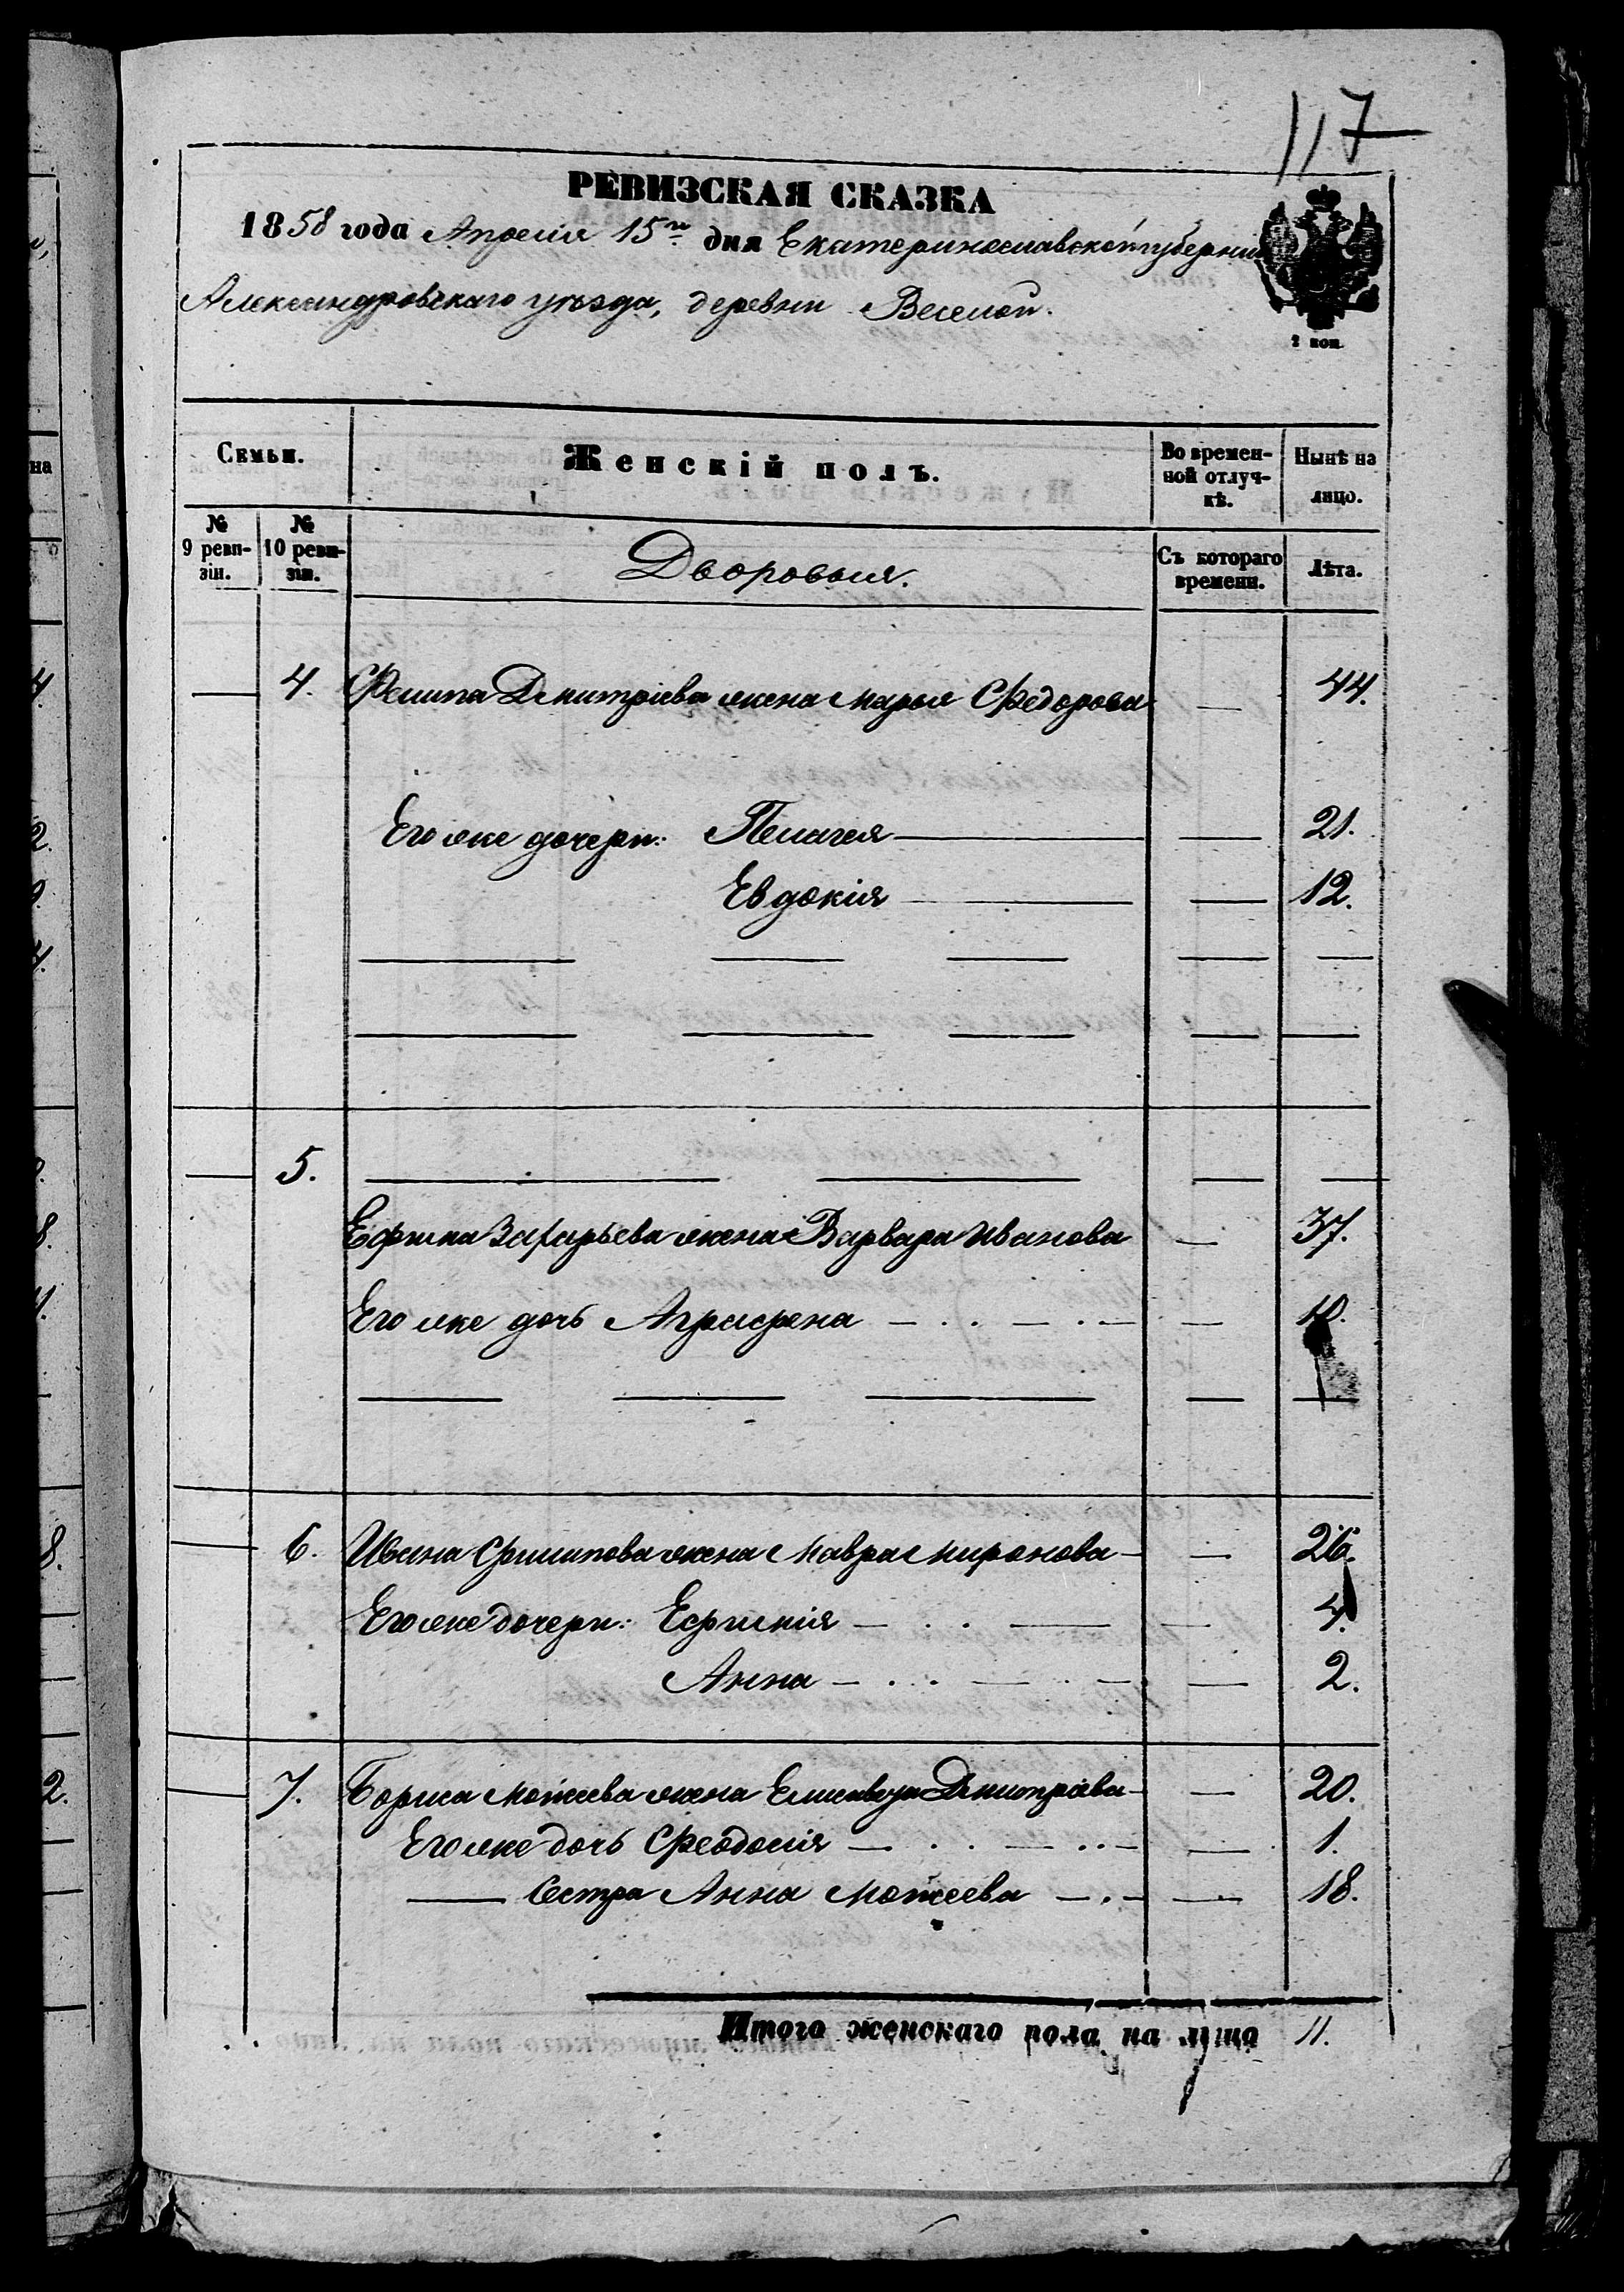 117
РЕВИЗСКАЯ СКАЗКА
1858 года Апреля 15го дня Екатеринославской губерніи
Александровскаго уѣзда, деревни Веселой.
2 коп.
Семьи. Женскій полъ. Во временной отлучкѣ. Нынѣ на лицо.
№ 9 ревизіи. № 10 ревизіи. Дворовыя. Съ котораго времени. Лѣта.
— 4. Филипа Дмитріева жена Марья Федорова — 44.
Его же дочери: Пелагея — — 21.
Евдокія — — 12.
— 5. — — — —
Ефима Захарьева жена Варвара Иванова — 37.
Его же дочь Агрифена — . . — . . — — 10.
— 6. Ивана Филипова жена Мавра Миронова — — 26.
Его же дочери: Ефимія — . . — — 4.
Анна — . . . — . . — — 2.
— 7. Бориса Мотеева жена Елисавета Дмитріева — — 20.
Его же дочь Феодосія — . . — . . — — 1.
— Сестра Анна Мотеева — . — — 18.
Итого женскаго пола на лицо 11.